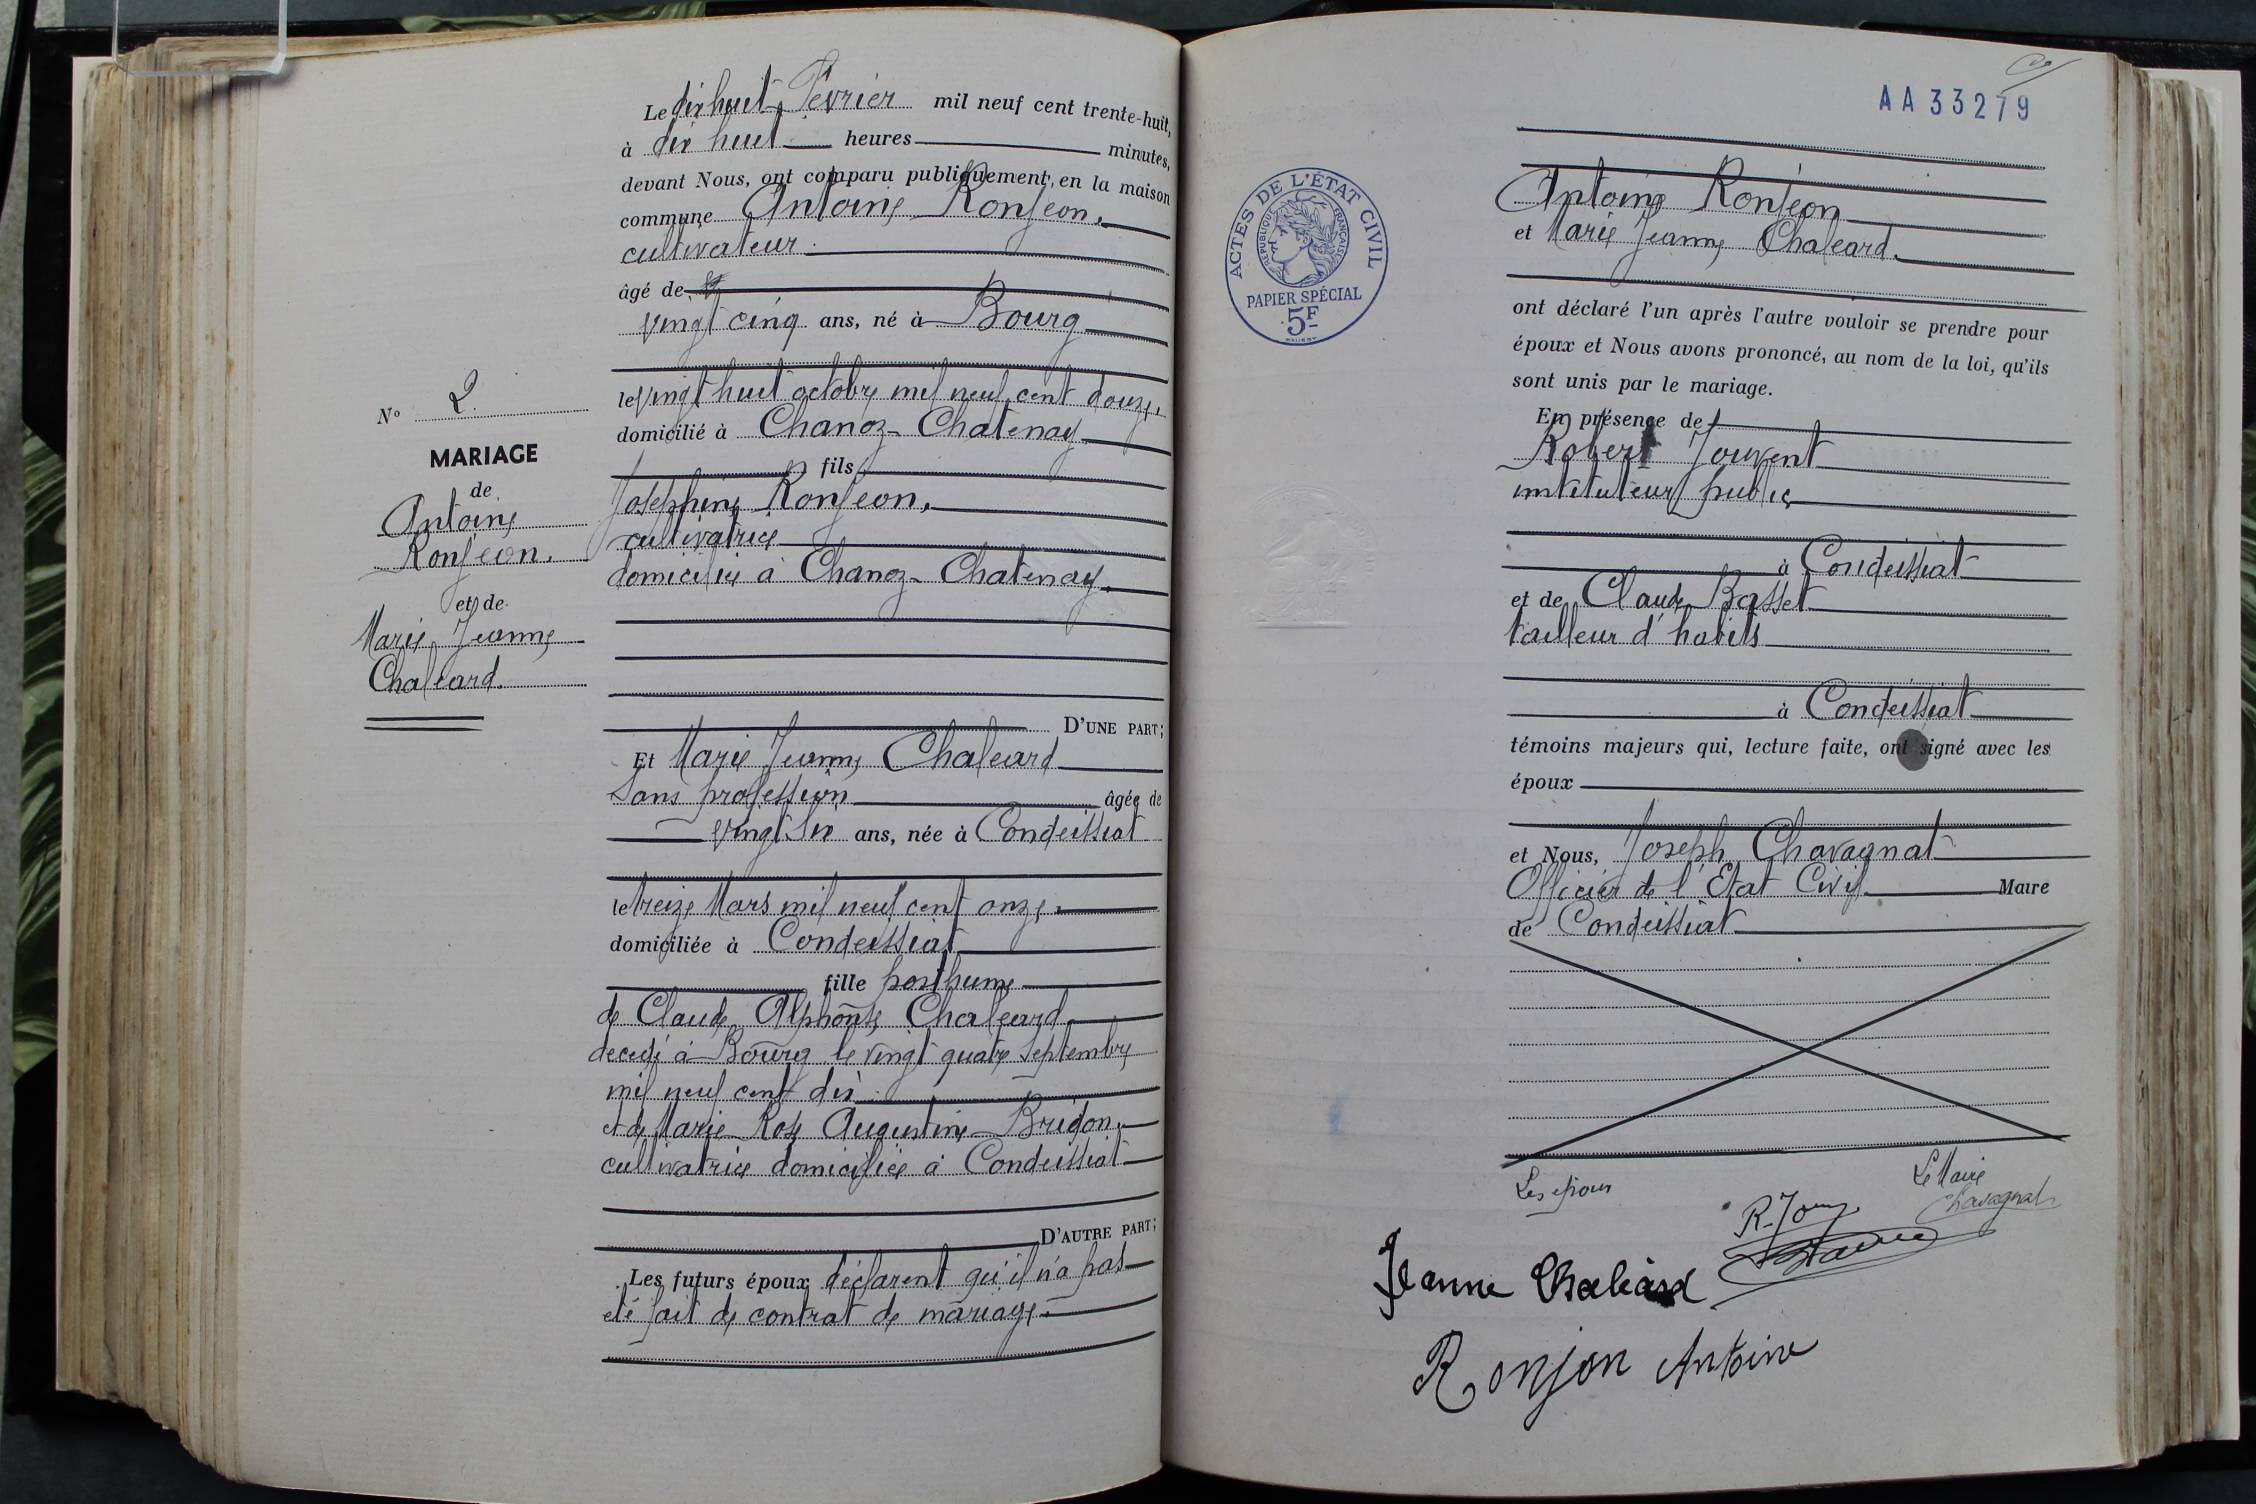 Le dix huit Février mil neuf cent trente-huit,
à dix huit heures minutes,
devant Nous, ont comparu publiquement, en la maison
commune Antoine Ronjeon,
cultivateur
âgé de
vingt cinq ans, né à Bourg
le vingt huit octobre mil neuf cent douze,
domicilié à Chanoz-Chatenay
fils
Joséphine Ronjeon,
cultivatrice
domiciliée à Chanoz-Chatenay.
D'UNE PART;
Et Marie Jeanne Chaleard
Sans profession âgée de
vingt six ans, née à Condeissiat
le treize Mars mil neuf cent onze,
domiciliée à Condeissiat
fille posthume
de Claude Alphonse Chaleard
décédé à Bourg le vingt quatre Septembre
mil neuf cent dix
et de Marie Rose Augustine Bridon,
cultivatrice domiciliée à Condeissiat
D'AUTRE PART;
Les futurs époux déclarent qu'il n'a pas
été fait de contrat de mariage.
N° 2.
MARIAGE
de
Antoine
Ronjeon.
et de
Marie Jeanne
Chaleard.
AA33279
ACTES DE L'ÉTAT CIVIL
RÉPUBLIQUE FRANÇAISE
PAPIER SPÉCIAL
5F
Antoine Ronjeon
et Marie Jeanne Chaleard.
ont déclaré l'un après l'autre vouloir se prendre pour
époux et Nous avons prononcé, au nom de la loi, qu'ils
sont unis par le mariage.
En présence de
Robert Jouvent
instituteur public
à Condeissiat
et de Claude Basset
tailleur d'habits
à Condeissiat
témoins majeurs qui, lecture faite, ont signé avec les
époux
et Nous, Joseph Chavagnat
Officier de l'Etat Civil Maire
de Condeissiat
Les époux
Le Maire
Chavagnat
Jeanne Chaleard
Ronjon Antoine